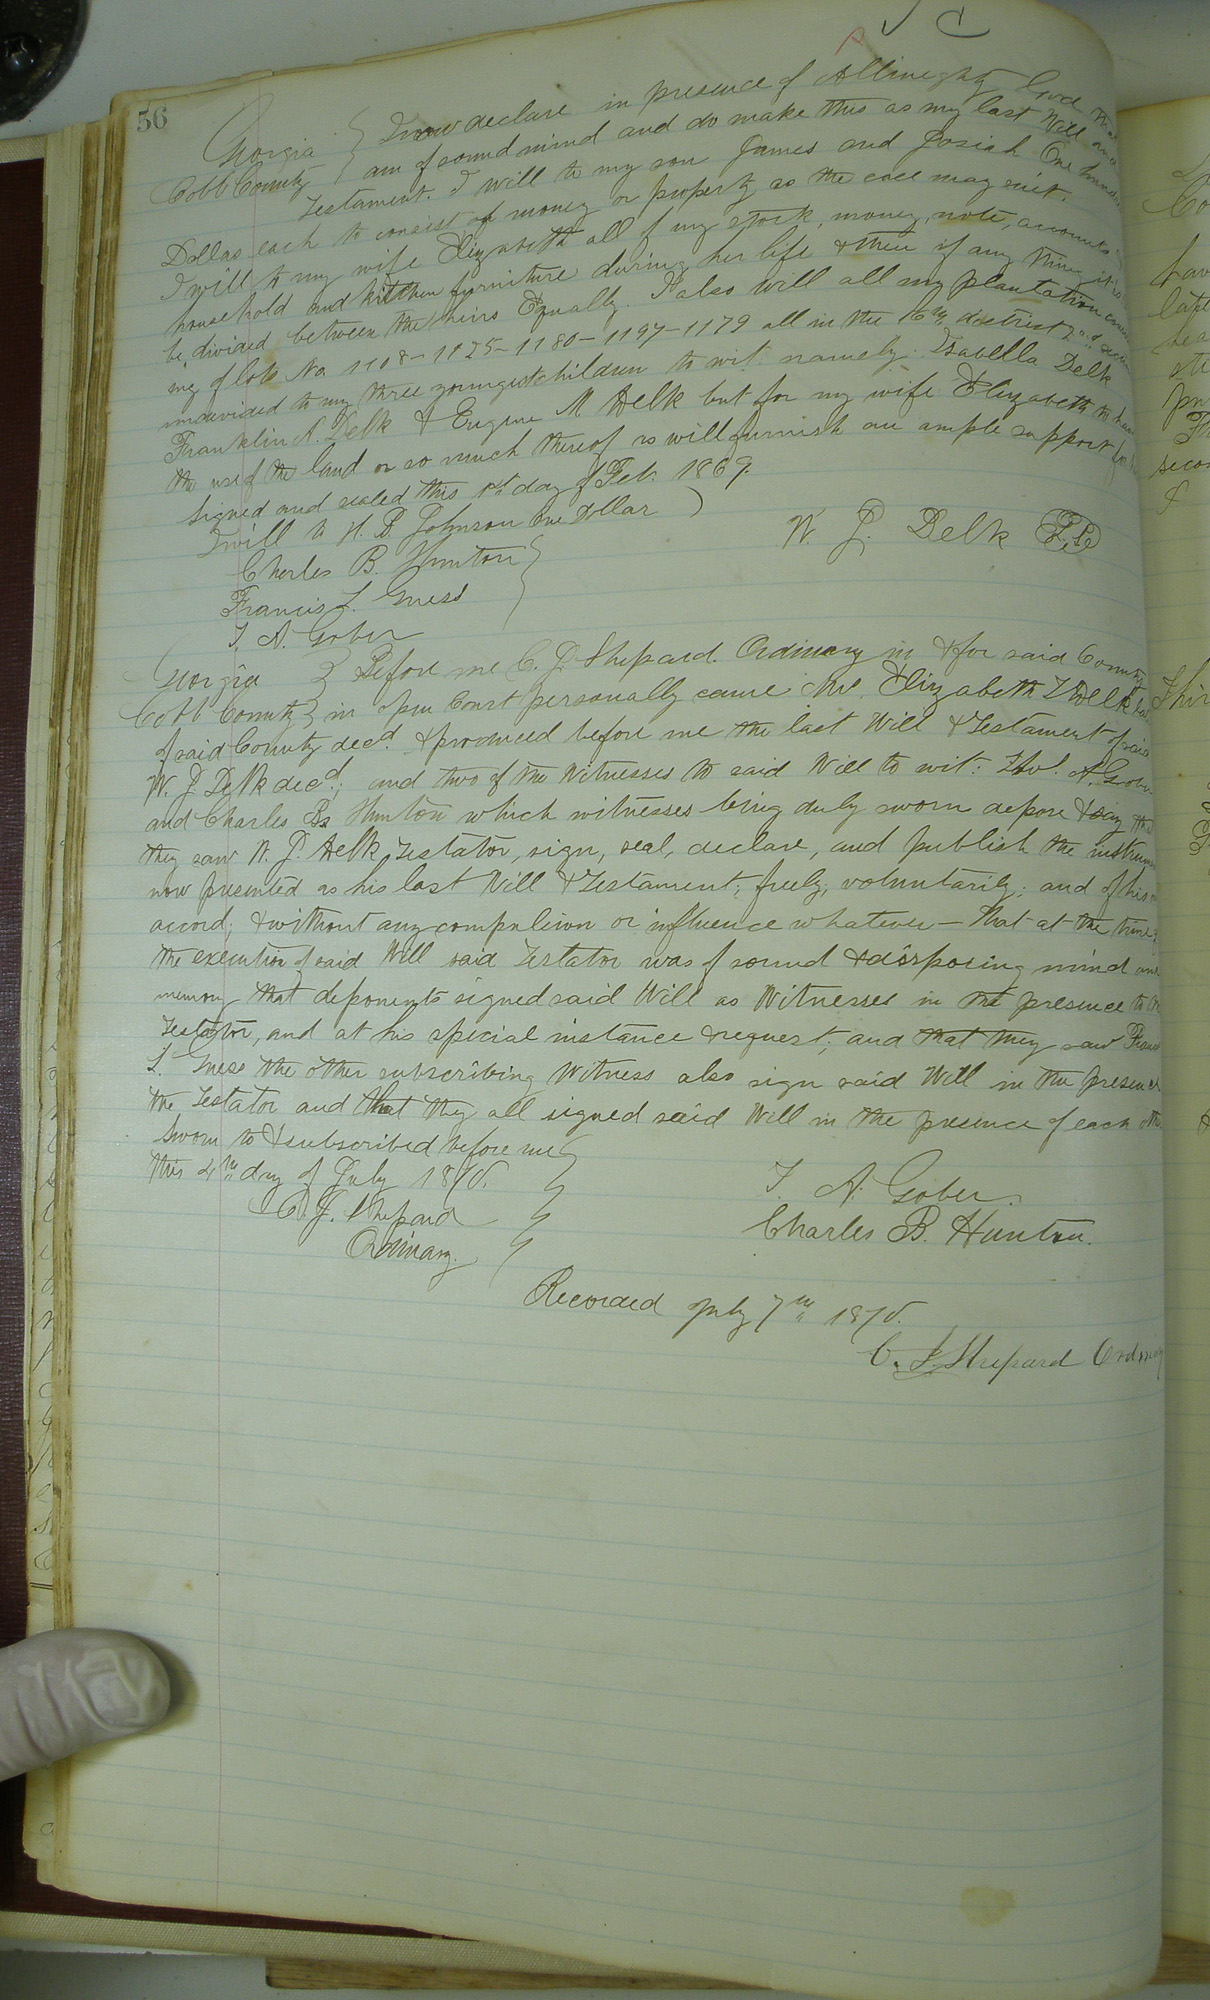 56
Georgia } I now declare in presence of Allmighty God that
Cobb County } am of sound mind and do make this as my last Will and
Testament. I will to my son James and Josiah One hundred
Dollars each to consist of money or property as the case may suit.
I will to my wife Elizabeth all of my stock, money, note, accounts
household and kitchen furniture during her life & then if any thing
be divided between the heirs Equally. I also will all my plantation
ing of lots No 1108 - 1125 - 1180 - 1197 - 1179 all in the 16th district 2nd
undivided to my three youngest children to wit namely: Isabella Delk
Franklin A. Delk & Eugene M Delk but for my wife Elizabeth to have
the use of the land or so much thereof as will furnish an ample support for
Signed and sealed this 1st day of Feb. 1869.
I will to H. B. Johnson one Dollar )
W. J. Delk
Charles B. Hunton }
Francis L. Guess
T. A. Gober
Georgia } Before me C. J. Shepard. Ordinary in & for said County
Cobb County } in open Court personally came Mrs. Elizabeth Delk
of said County decd. & produced before me the last Will & Testament of said
W. J. Delk decd; and two of the Witnesses to said Will to wit: A. Gober
and Charles B. Hunton which witnesses being duly sworn depose & say that
they saw W. J. Delk, Testator, sign, seal, declare, and publish the
now presented as his last Will & Testament; freely, voluntarily; and of his
accord, & without any compulsion or influence whatever - that at the time
the execution of said Will said Testator was of sound & disposing mind and
memory, that deponents signed said Will as Witnesses in the presence
Testator, and at his special instance & request; and that they saw
L. Guess the other subscribing Witness also sign said Will in the presence
the Testator and that they all signed said Will in the presence of each other
Sworn to & subscribed before me
this 4th day of July 1870.
T. A. Gober.
C. J. Shepard
Charles B. Hunton.
Ordinary.
Recorded July 7th 1870.
C. J. Shepard Ordinary